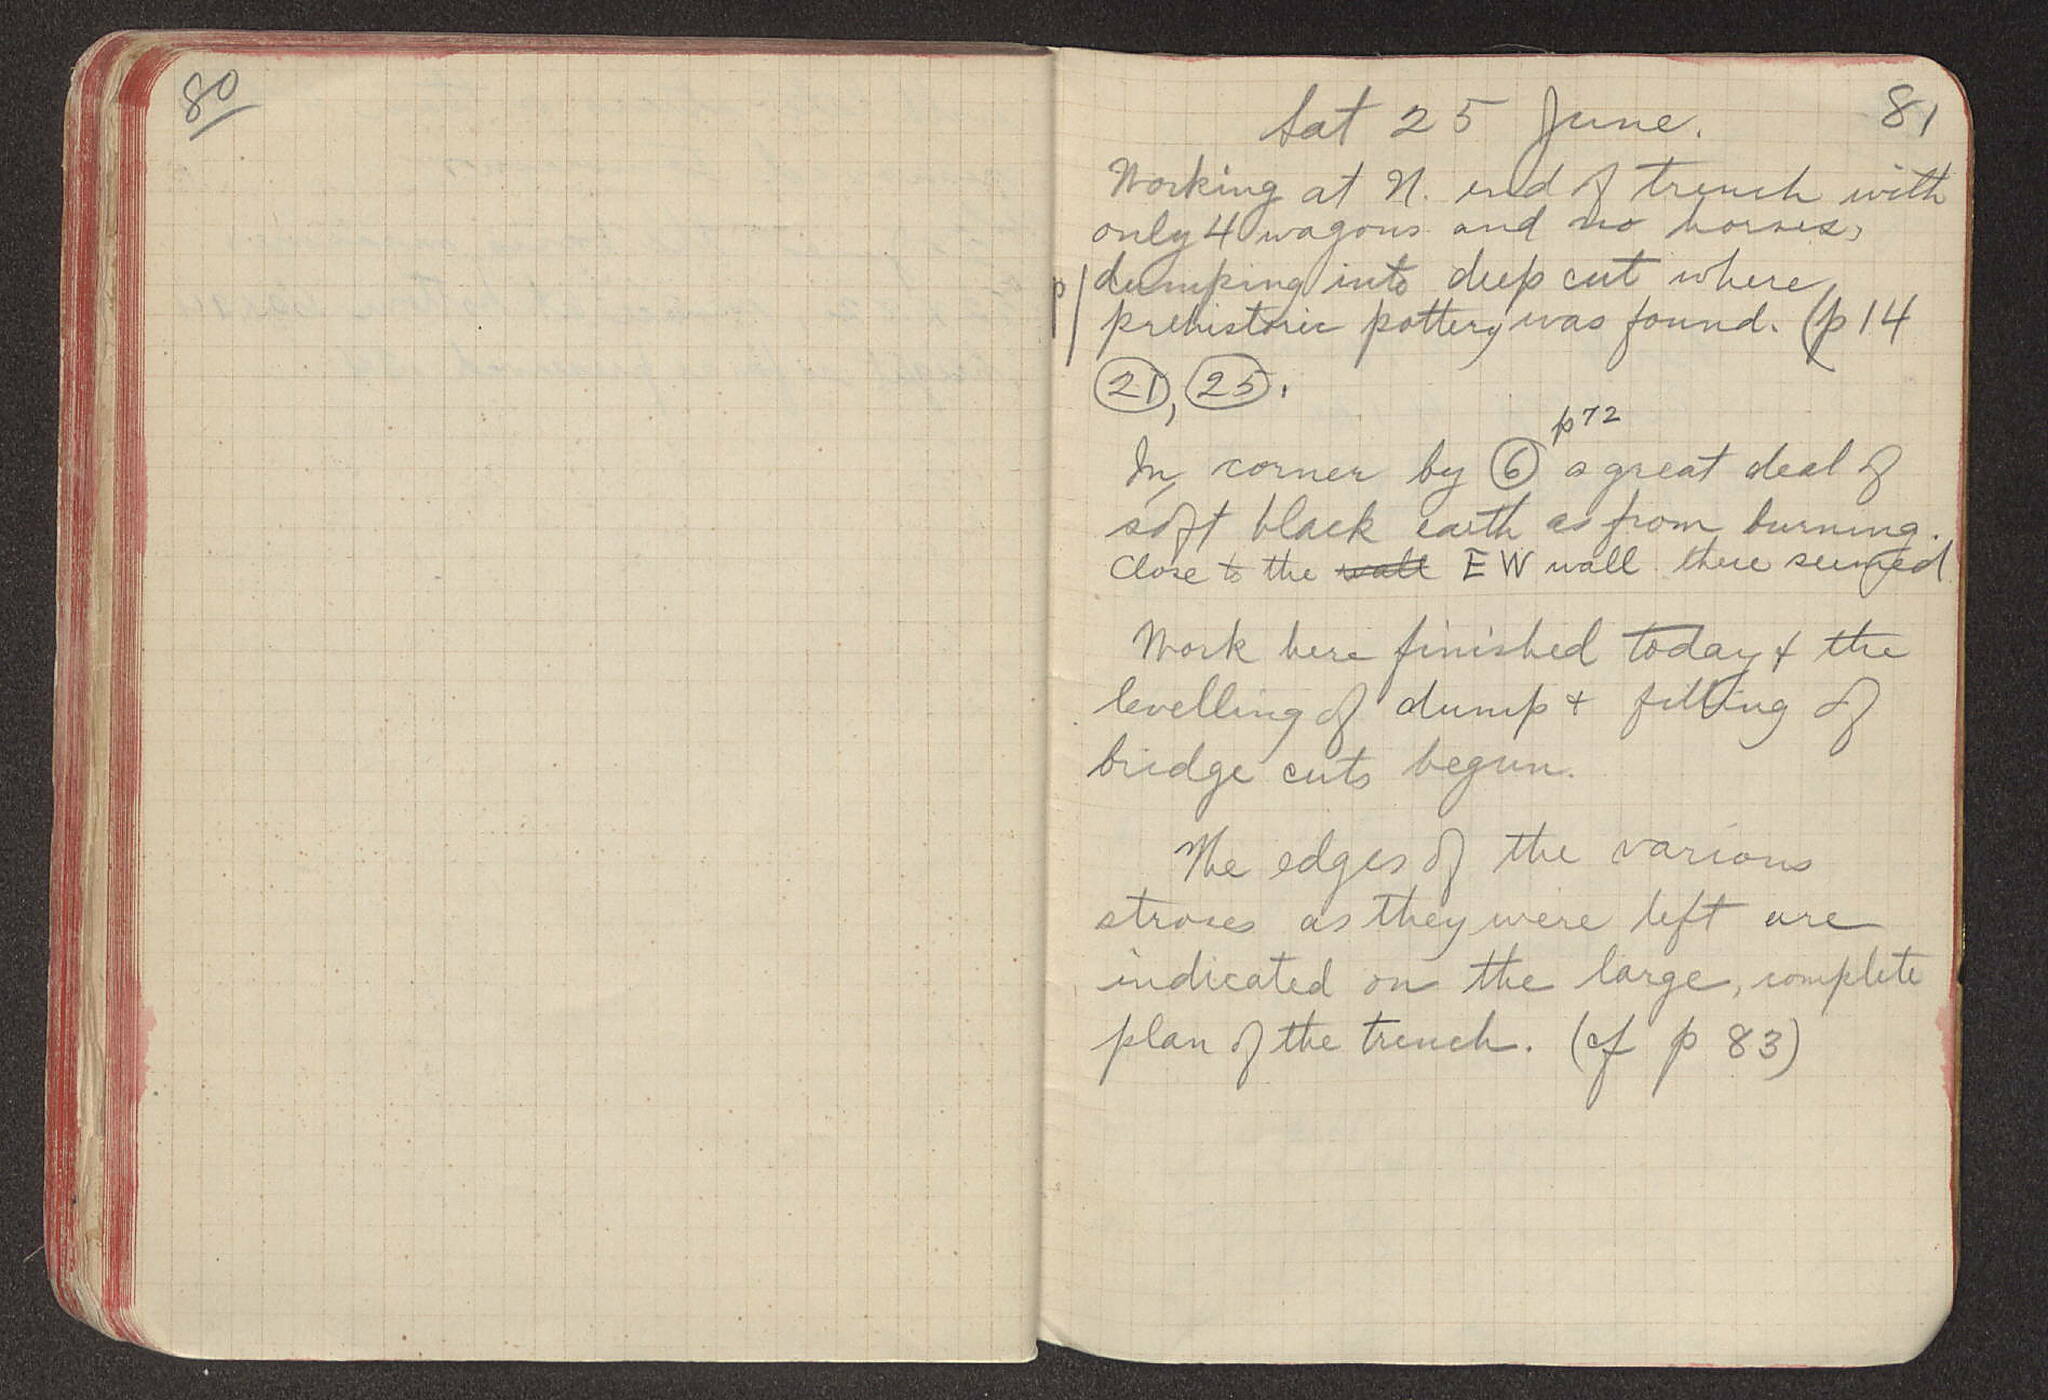 80
81
Sat 25 June.
Working at N. end of trench with
only 4 wagons and no horses,
p/ dumping into deep cut where
prehistoric pottery was found. (p 14
21, 25.
p 72
In corner by 6 a great deal of
soft black earth as from burning.
Close to the wall EW wall there seemed
Work here finished today + the
levelling of dump + filling of
bridge cuts begun.
The edges of the various
stroses as they were left are
indicated on the large, complete
plan of the trench. (cf p 83)